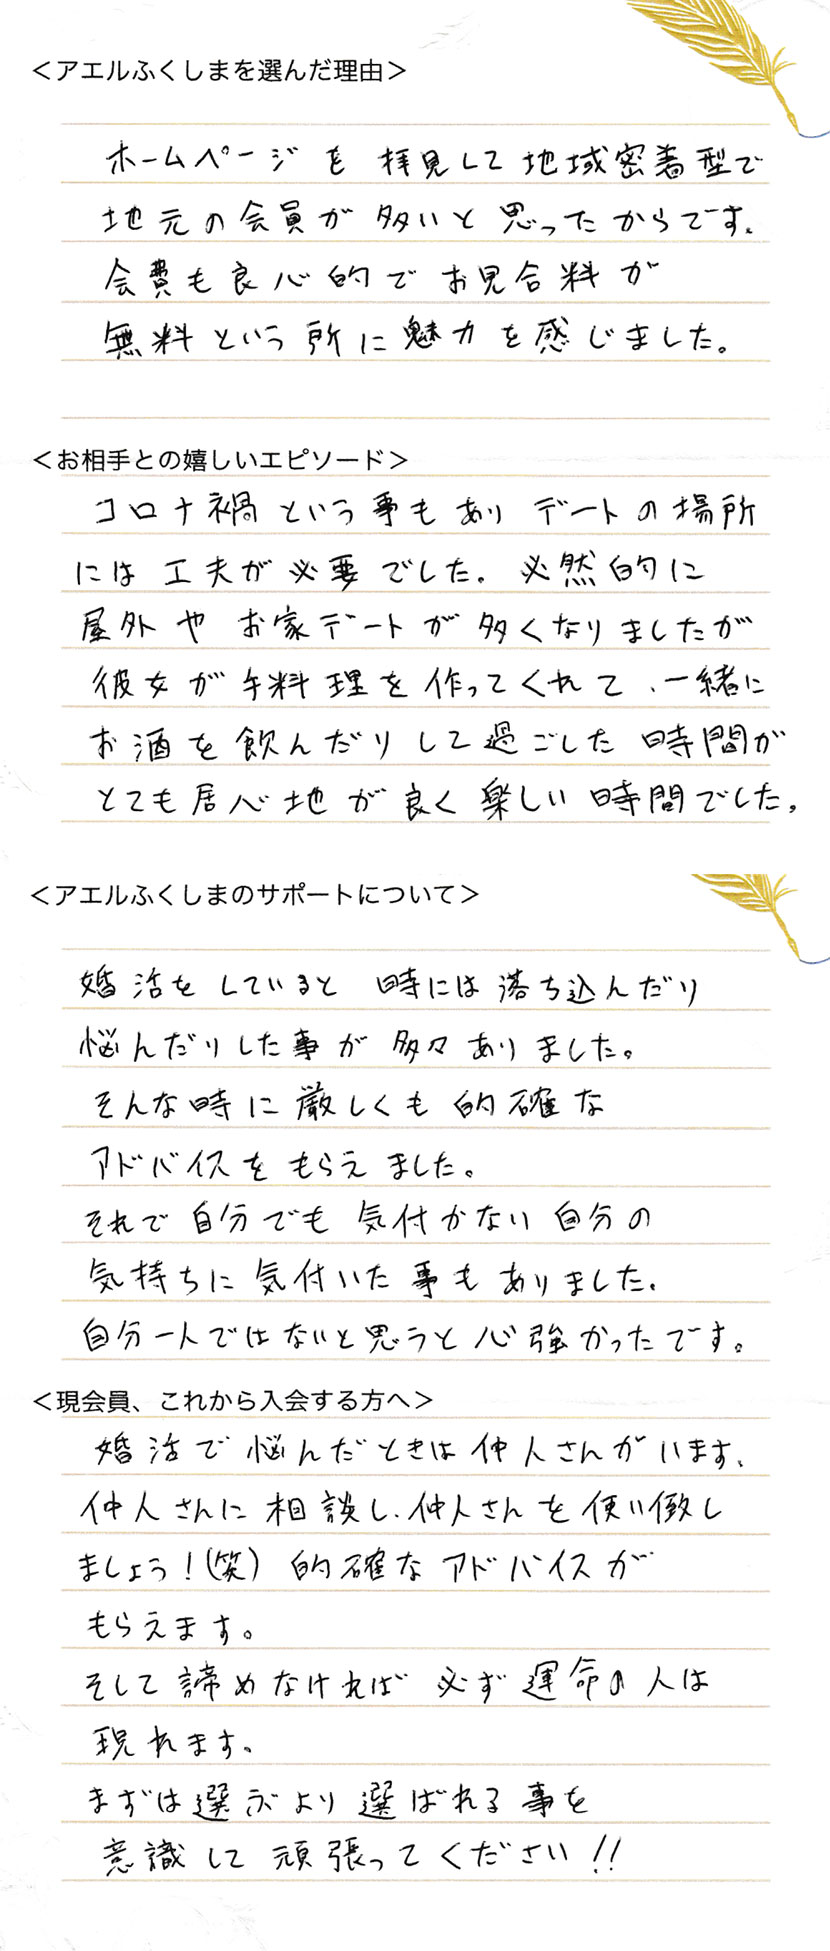 ＜アエルふくしまを選んだ理由＞
ホームページを拝見して地域密着型で
地元の会員が多いと思ったからです。
会費も良心的でお見合料が
無料という所に魅力を感じました。
＜お相手との嬉しいエピソード＞
コロナ禍という事もありデートの場所
には工夫が必要でした。必然的に
屋外やお家デートが多くなりましたが
彼女が手料理を作ってくれて、一緒に
お酒を飲んだりして過ごした時間が
とても居心地が良く楽しい時間でした。
＜アエルふくしまのサポートについて＞
婚活をしていると時には落ち込んだり
悩んだりした事が多々ありました。
そんな時に厳しくも的確な
アドバイスをもらえました。
それで自分でも気付かない自分の
気持ちに気付いた事もありました。
自分一人ではないと思うと心強かったです。
＜現会員、これから入会する方へ＞
婚活で悩んだときは仲人さんがいます、
仲人さんに相談し、仲人さんを使い倒し
ましょう！(笑)的確なアドバイスが
もらえます。
そして諦めなければ必ず運命の人は
現れます。
まずは選ぶより選ばれる事を
意識して頑張ってください!!